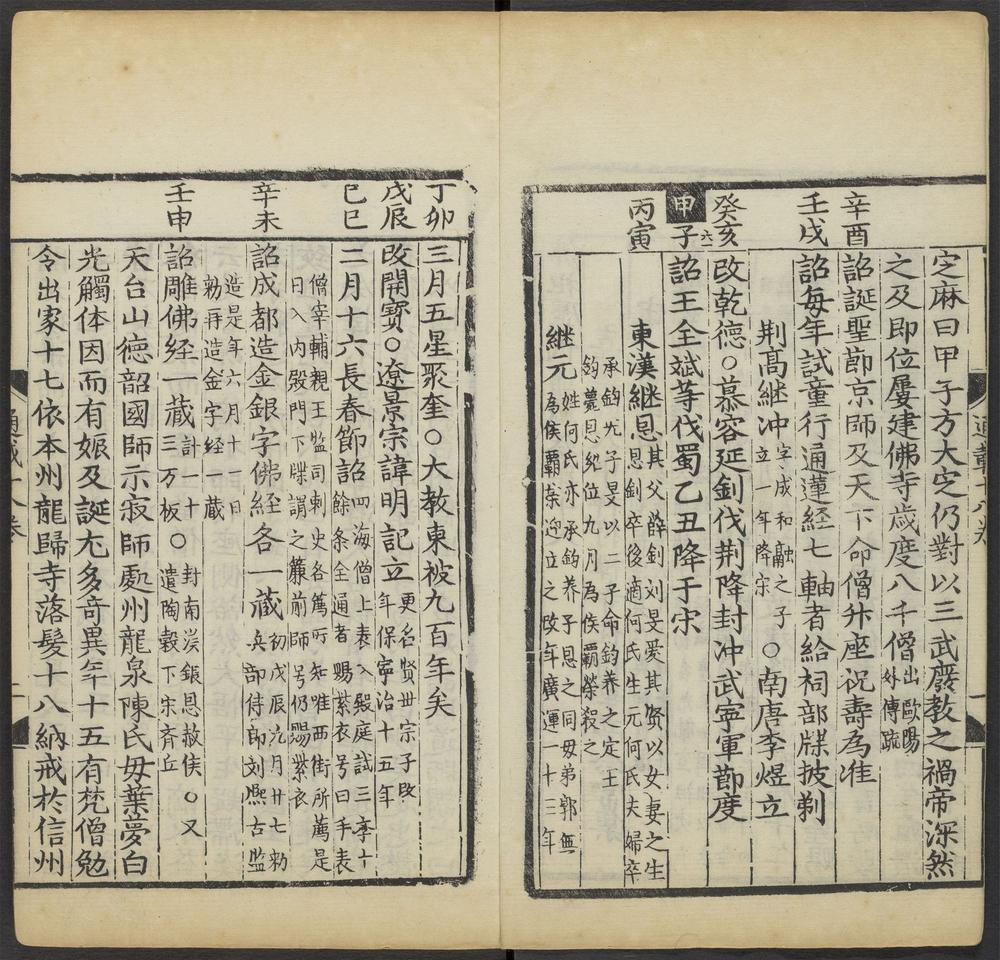 定麻曰甲子方大定仍對以三武廢教之禍帝深然
之及即位屢建佛寺歲度八千僧出歐陽外傳䟽
辛酉
詔誕聖節京師及天下命僧升座祝壽為准
壬戌
詔每年試童行通蓮経七軸者給祠部牒披剃
荆髙継冲字成和融之子立一年降宋〇南唐李煜立
癸亥
改乾德〇慕容延釗伐荆降封冲武寧軍節度
甲子六
詔王全斌等伐蜀乙丑降于宋
丙寅
東漢継恩其父薛釗刘旻爱其贤以女妻之生恩釗卒後適何氏生元何氏夫婦卒
承鈞尢子旻以二子命鈞养之定王
鈞薨恩紀位九月為侯霸榮殺之
継元姓何氏亦承鈞养子恩之同母弟郭無為侯霸荣迎立之改年廣運一十三年
丁卯
三月五星聚奎〇大教東被九百年矣
戊辰
改開寶〇遼景宗諱明記立更名贤丗宗子改年保寧治十五年
己巳
二月十六長春節詔四海僧上表入殿庭試三李十餘条全通者賜紫衣号曰手表
僧宰輔親王监司刺史各篤所知唯西街所薦是
日入内殿門下牒謂之簾前師号仍賜紫衣
辛未
詔成都造金銀字佛經各一藏初戊辰九月廿七勑兵部侍郎刘熈古监
造是年六月十一日
勑再造金字经一蔵
壬申
詔雕佛経一蔵計一十三万板〇封南漢鋹恩赦侯〇又遣陶穀下宋齐丘
天台山徳韶國師示寂師處州龍泉陳氏母葉夢白
光觸体因而有娠及誕尢多竒異年十五有梵僧勉
令出家十七依本州龍歸寺落髮十八納戒於信州
通載十八卷